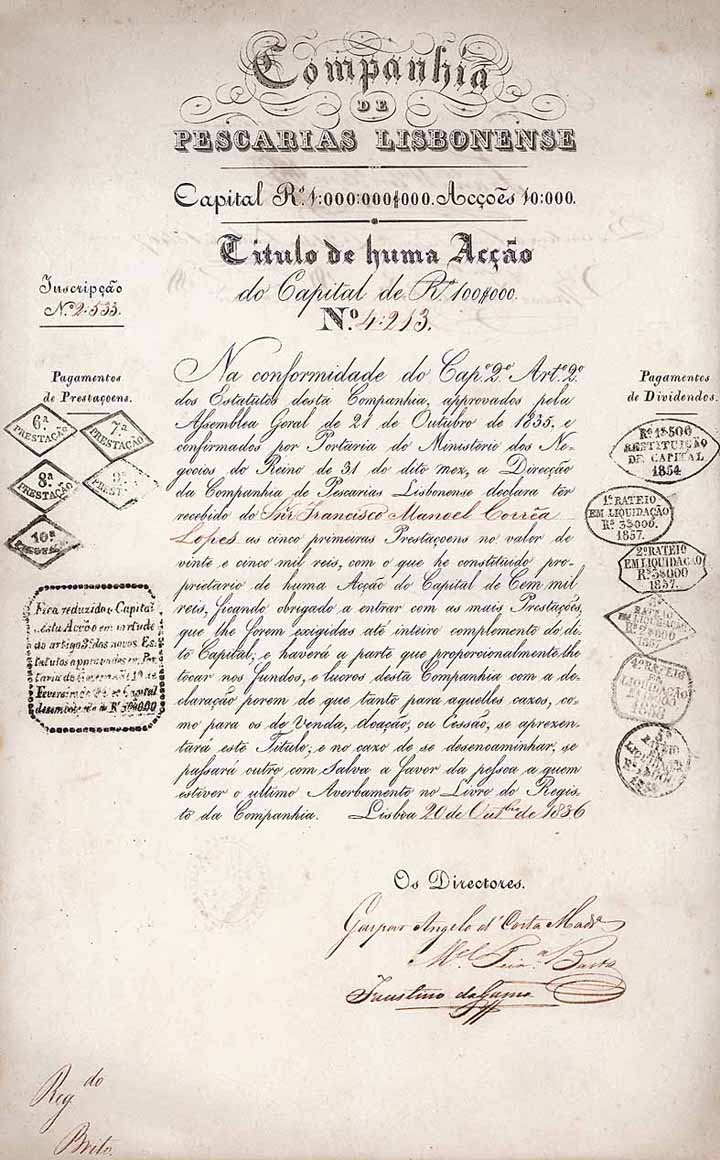 Companhia
DE
PESCARIAS LISBONENSE
Capital Rs. 1:000:000$000. Acções 10:000.
Titulo de huma Acção
do Capital de Rs. 100$000.
Nº. 4:213.
Inscripção
Nº. 2:533.
Pagamentos
de Prestaçoens.
6ª
PRESTAÇÃO
7ª
PRESTAÇÃO
8ª
PRESTAÇÃO
PRESTAÇÃO
10ª
Fica reduzido o Capital
desta Acção em virtude
do artigo 3º dos novos Es-
tatutos approvados em Por-
taria do Governo
Fevereiro de
Na conformidade do Capº. 2º Artº. 2º
dos Estatutos desta Companhia, approvados pela
Assemblea Geral de 21 de Outubro de 1835, e
confirmados por Portaria do Ministerio dos Ne-
gocios do Reino de 31 do dito mez, a Direcção
da Companhia de Pescarias Lisbonense declara ter
recebido do Snr. Francisco Manoel Corrêa
Lopes as cinco primeiras Prestaçoens no valor de
vinte e cinco mil reis, com o que he constituido pro-
prietario de huma Acção do Capital de Cem mil
reis, ficando obrigado a entrar com as mais Prestações,
que lhe forem exigidas até inteiro complemento do di-
to Capital; e haverá a parte que proporcionalmente lhe
tocar nos fundos, e lucros desta Companhia com a de-
claração porem de que tanto para aquelles cazos, co-
mo para os de Venda, doação, ou Cessão, se aprezen-
tará este Titulo; e no cazo de se desencaminhar, se
passará outro com Salva a favor da pessoa a quem
estiver o ultimo Averbamento no Livro do Regis-
to da Companhia. Lisboa 20 de Outbro de 1836
Pagamentos
de Dividendos.
Rs. 1$500
RESTITUIÇÃO
DE CAPITAL
1854
1º RATEIO
EM LIQUIDAÇÃO
Rs. 3$000.
1857.
2º RATEIO
EM LIQUIDAÇÃO
Rs. 3$000
1857.
RATEIO
EM LIQUIDAÇÃO
Rs. 2$000
4º RATEIO
EM
LIQUIDAÇÃO
RATEIO
Os Directores.
Gaspar Angelo d'Costa
Faustino da Gama
Reg.do
Brito.